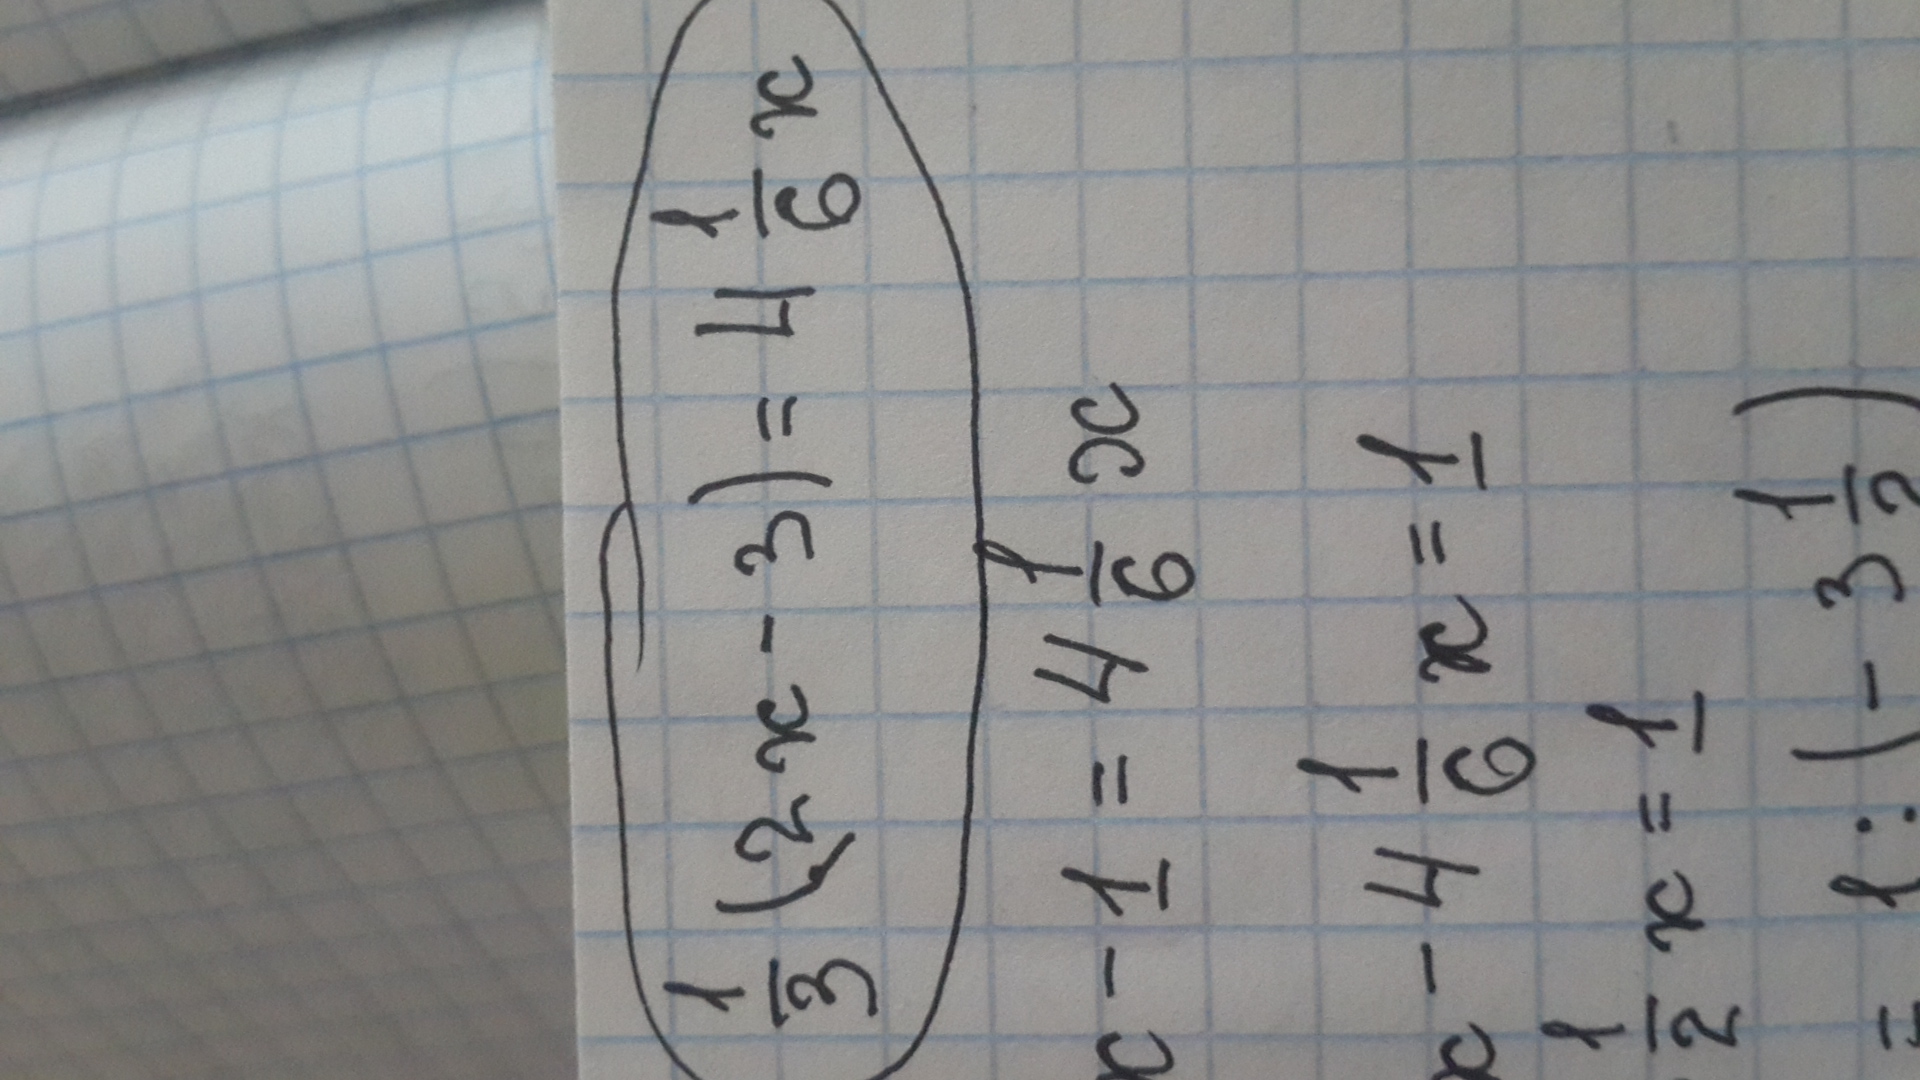 1/3 (2x - 3) = 4 1/6 x
x - 1 = 4 1/6 x
x - 4 1/6 x = 1
1/2 x = 1
= 1 : (- 3 1/2)